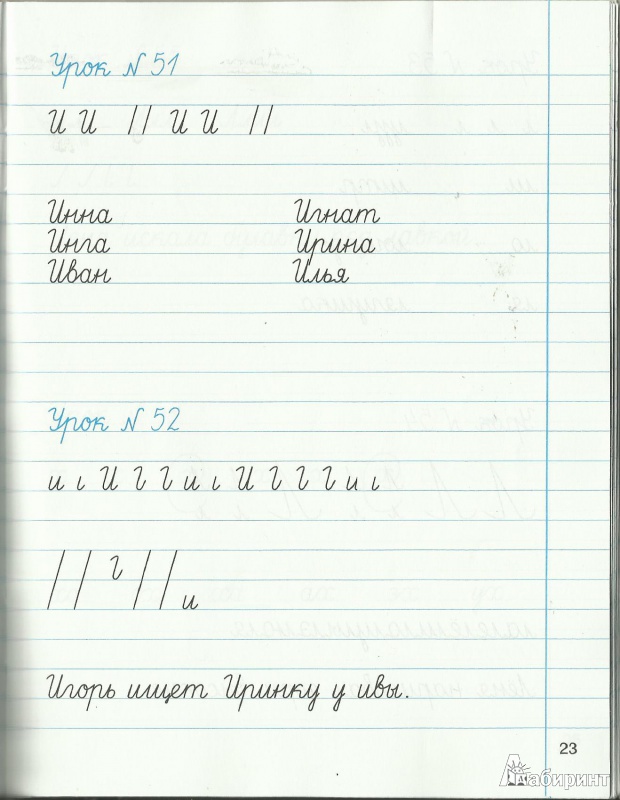 Урок № 51
И И // И И //
Инна Игнат
Инга Ирина
Иван Илья
Урок № 52
и ι И
и ι И
и ι
// // и
Игорь ищет Иринку у ивы.
23
Лабиринт